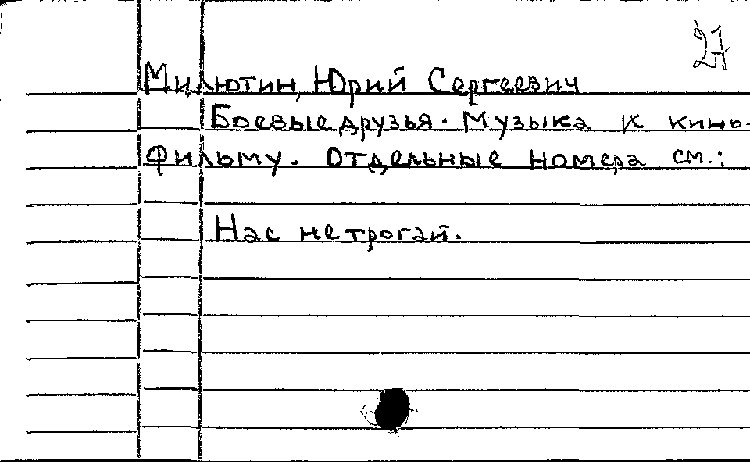 27
Милютин, Юрий Сергеевич
Боевые друзья. Музыка к кино-
фильму. Отдельные номера см.:
Нас не трогай.